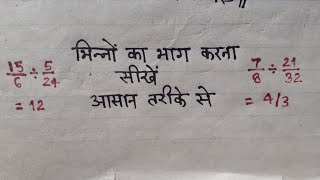 भिन्नों का भाग करना
सीखें
आसान तरीके से
15/6 ÷ 5/24
= 12
7/8 ÷ 21/32
= 4/3